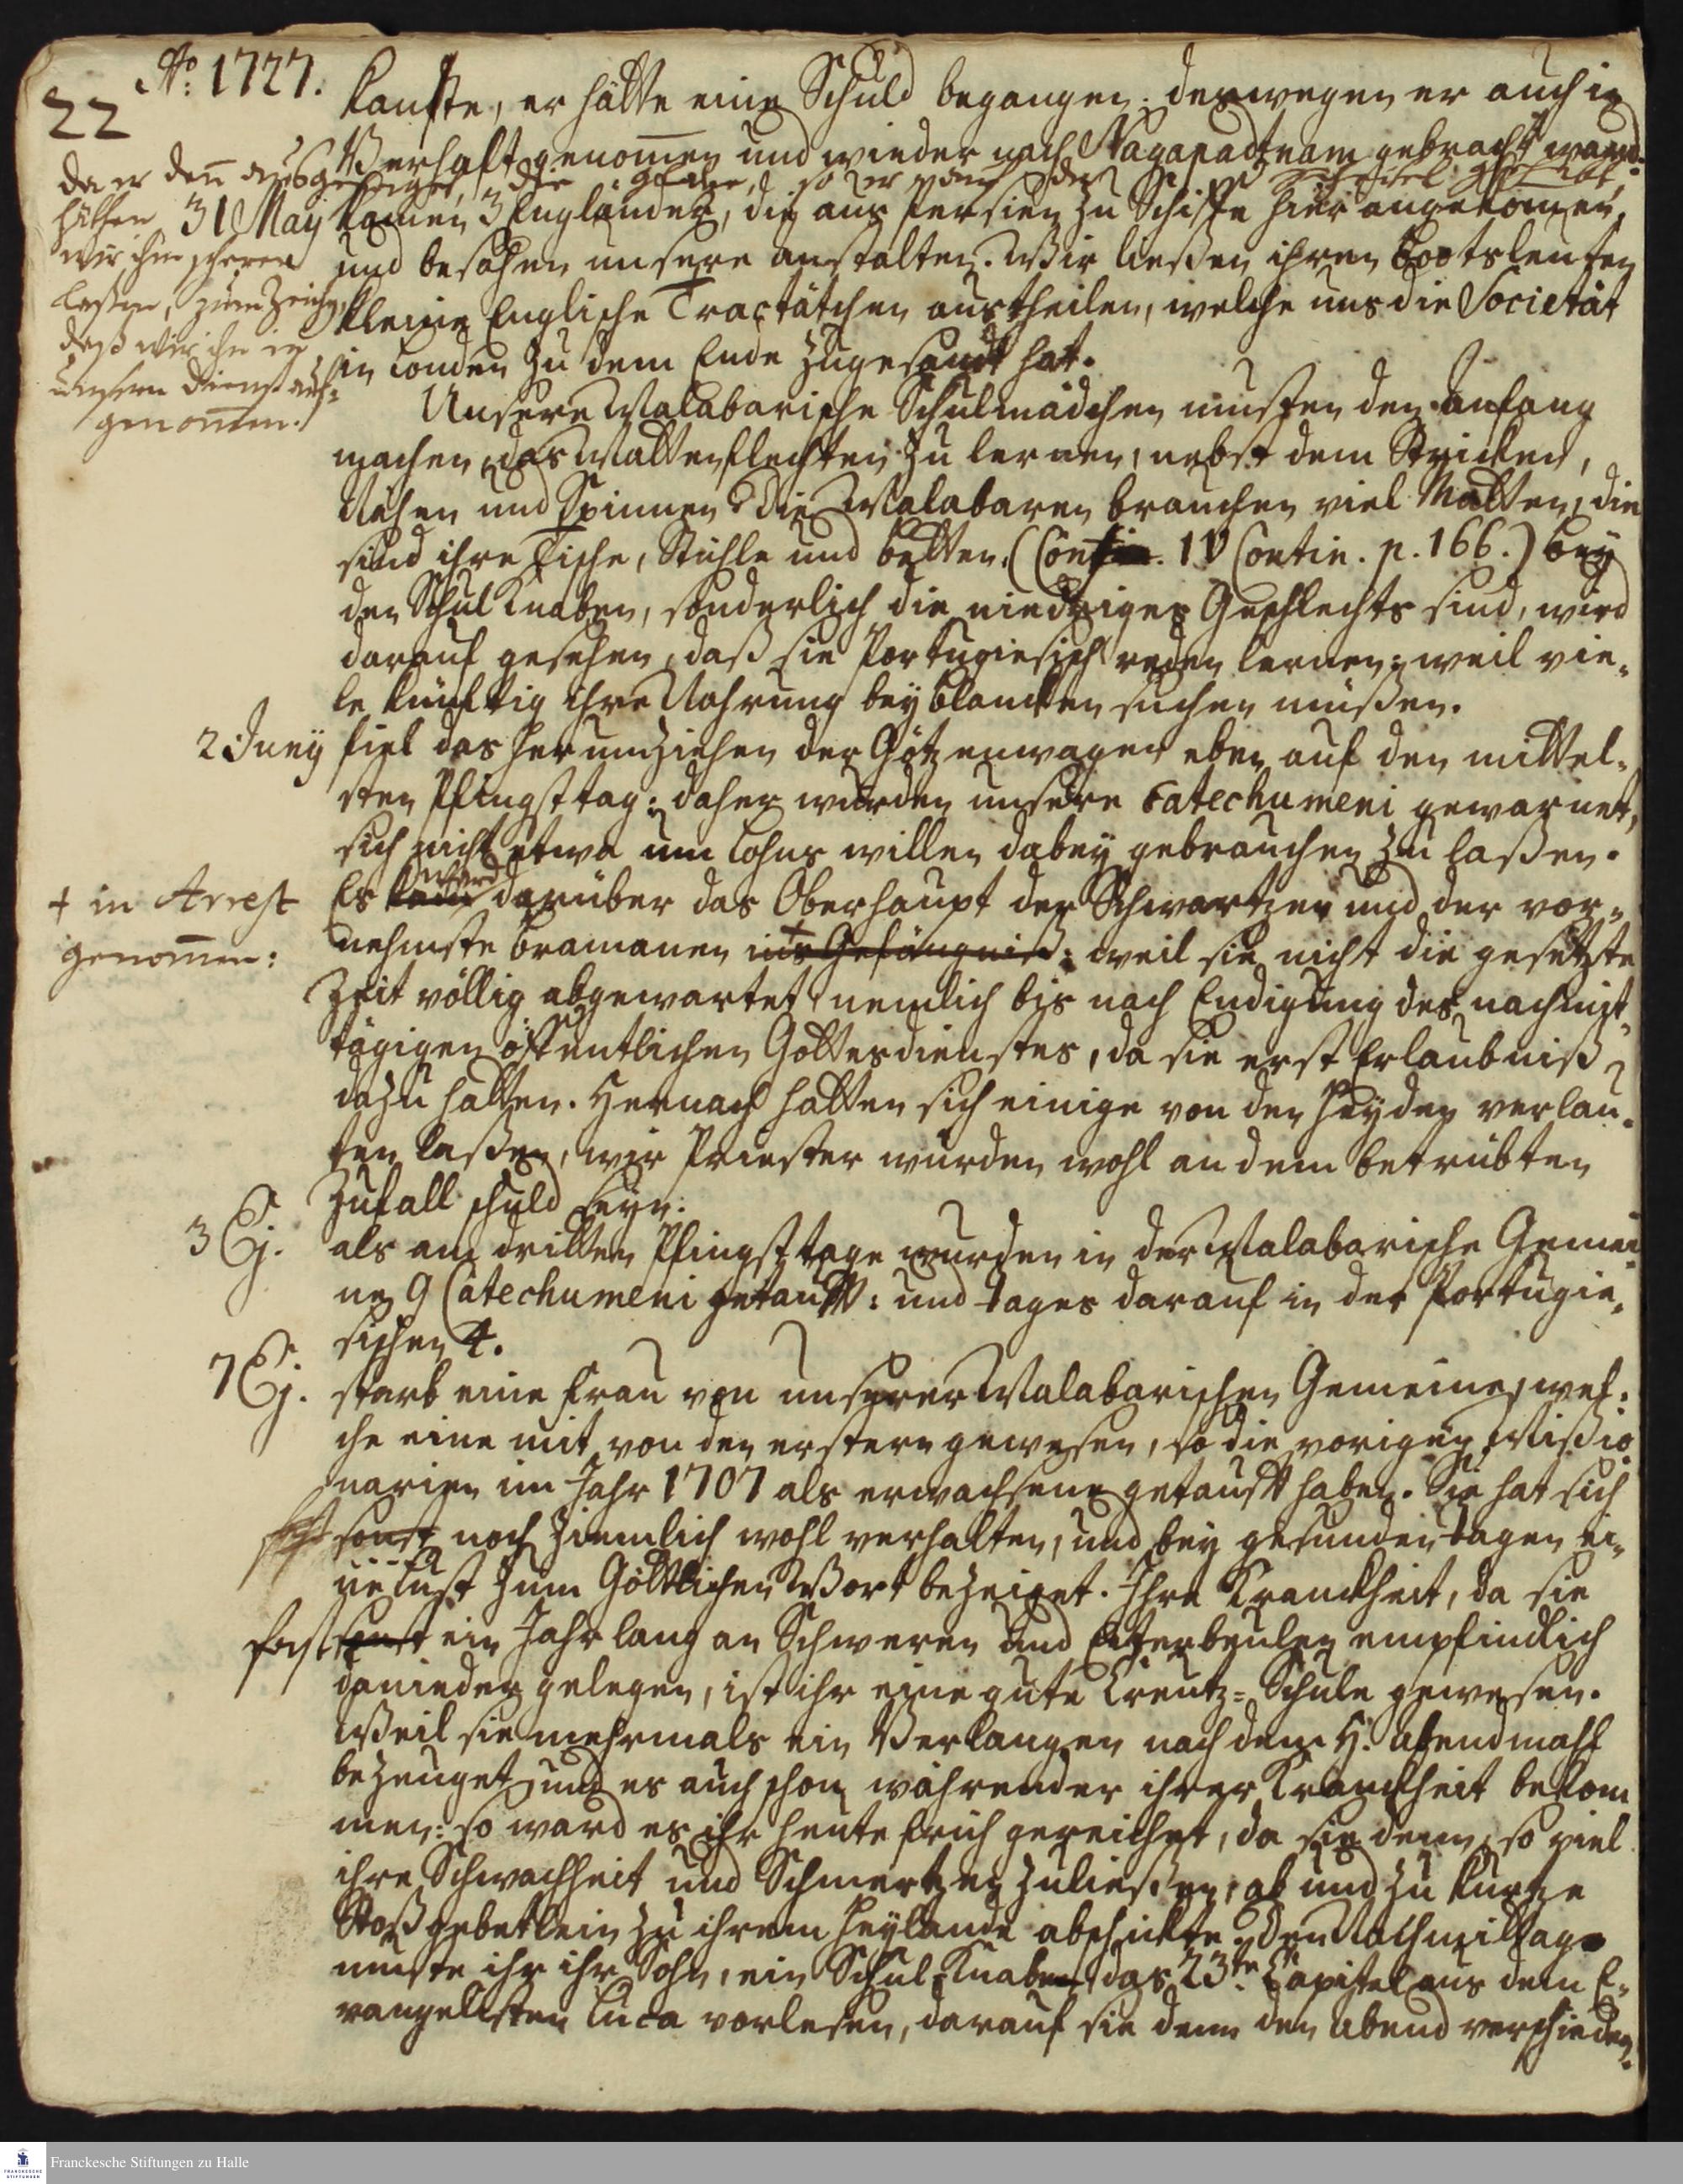 22
Ao: 1727.
kauste, er hätte eine Schuld begangen: deswegen er auch in
Verhaft genom̄en und wieder nach Nagapadtnam gebracht ward.
da er den̄ ausgesaget,
hätten
wir ihn scheren
laßen, zum Zeichen,
daß wir ihn in
unsern Dienst auf-
genom̄en.
31 May kamen 3 Engländer, die aus Persien zu Schiffe hier angekom̄en,
und besahen unsere anstalten. Wir ließen ihren Bootsleuten
kleine Englische Tractätchen austheilen, welche uns die Societät
in London zu dem Ende zugesandt hat.
Unsere Malabarische Schulmädchen musten den anfang
machen das Mattenflechten zu lernen, nebst dem Stricken,
Nähen und Spinnen. Die Malabaren brauchen viel Matten, die
sind ihre Tische, Stühle und Betten. (Contin. IV Contin. p. 166.) Bey
den Schul Knaben, sonderlich die niedriges Geschlechts sind, wird
darauf gesehen, daß sie Portugiesisch reden lernen: weil vie-
le künftig ihre Nahrung bey Blancken suchen müßen.
2 Juny fiel das herumziehen der Götzenwagen eben auf den mittel-
sten Pfingsttag: daher wurden unsere Catechumeni gewarnet,
sich nicht etwa um Lohns willen dabey gebrauchen zu laßen.
Es kam ward darüber das Oberhaupt der Schwartzen und der vor-
+ in Arrest
genom̄en:
nehmste Bramanen + ins Gefängniß: weil sie nicht die gesetzte
Zeit völlig abgewartet, nemlich bis nach Endigung des nachmit-
tägigen öffentlichen Gottesdienstes, da sie erst Erlaubniß
dazu hatten. Hernach hatten sich einige von den Heyden verlau-
ten laßen, wir Priester würden wohl an dem betrübten
Zufall schuld seyn.
3 Ej. als am dritten Pfingsttage wurden in der Malabarische Gemei-
ne 9 Catechumeni getaufft: und tages darauf in der Portugie-
sischen 4.
7 Ej. starb eine Frau von unserer Malabarischen Gemeine, wel-
che eine mit von den erstern gewesen, so die vorigen Mißio-
narien im Jahr 1707 als erwachsene getaufft haben. Sie hat sich
sonst noch ziemlich wohl verhalten, und bey gesunden tagen ei-
ne Lust zum Göttlichen Wort bezeiget. Ihre Kranckheit, da sie
fast sonst ein Jahr lang an Schweren und Eiterbeulen empfindlich
danieder gelegen, ist ihr eine gute Creutz-Schule gewesen.
Weil sie mehrmals ein Verlangen nach dem H. Abendmahl
bezeuget und es auch schon währender ihrer Kranckheit bekom
men: so ward es ihr heute früh gereichet, da sie denn, so viel
ihre Schwachheit und Schmertzen zuließen, ab und zu kurtze
Stoßgebetlein zu ihrem Heylande abschickte. Den Nachmittag
muste ihr ihr Sohn, ein Schul-Knaben, das 23te Capitel aus dem E-
vangelisten Luca vorlesen, darauf sie denn den Abend verschieden.
Franckesche Stiftungen zu Halle